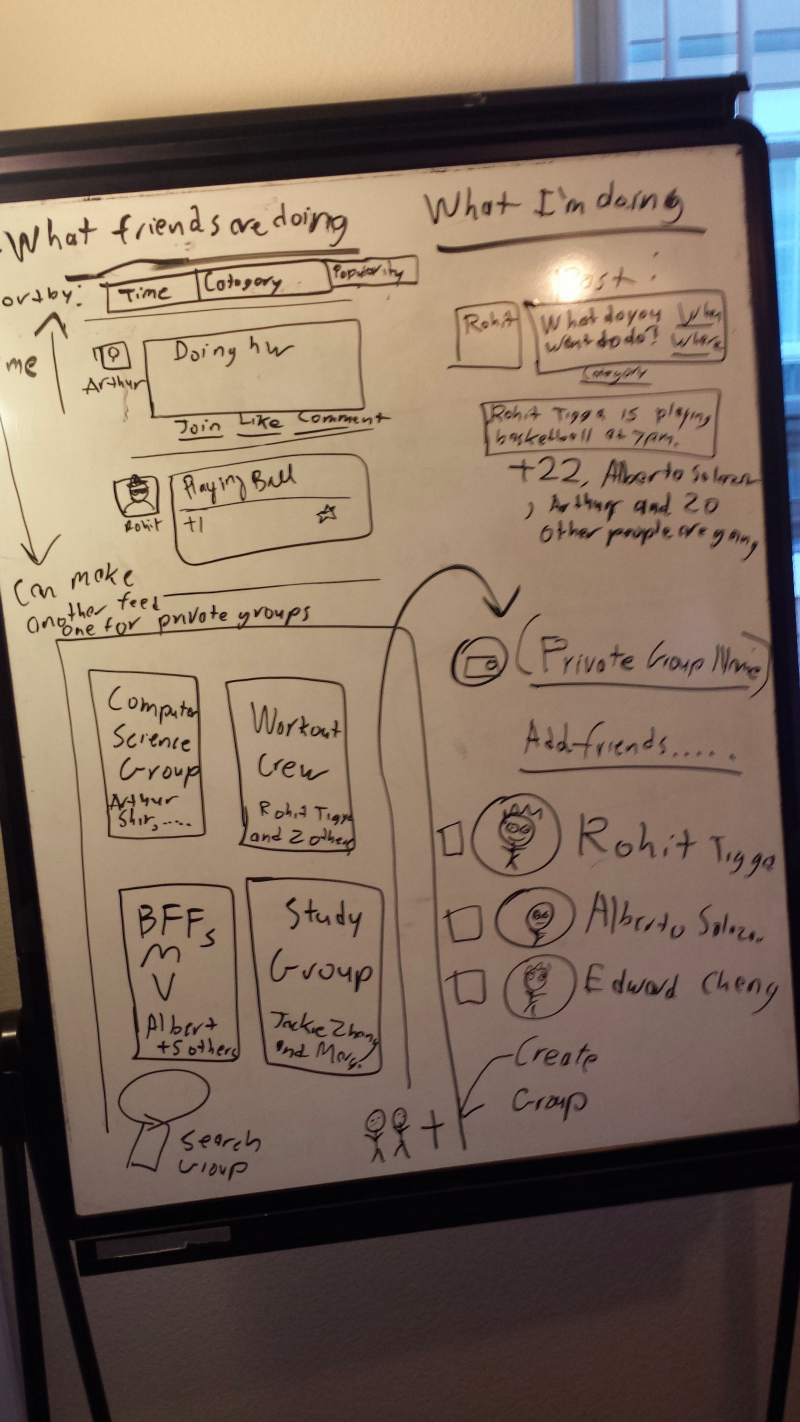 What friends are doing
ort by:
Time
Category
Popularity
me
Arthur
Doing hw
Join Like Comment
Rohit
Playing Ball
+1
Can make
another feed
one for private groups
Computer
Science
Group
Arthur
Shir, ....
Workout
Crew
Rohit Tigga
and 2 others
BFFs
M
V
Albert
+5 others
Study
Group
Jackie Zhang
and More.
Search
Group
+
What I'm doing
Post:
Rohit
What do you When
want to do? Where
Category
Rohit Tigga is playing
basketball at 7pm.
+22, Alberto
, Arthur and 20
other people are going
(Private Group Name)
Add friends.....
Rohit Tigga
Alberto
Edward Cheng
Create
Group